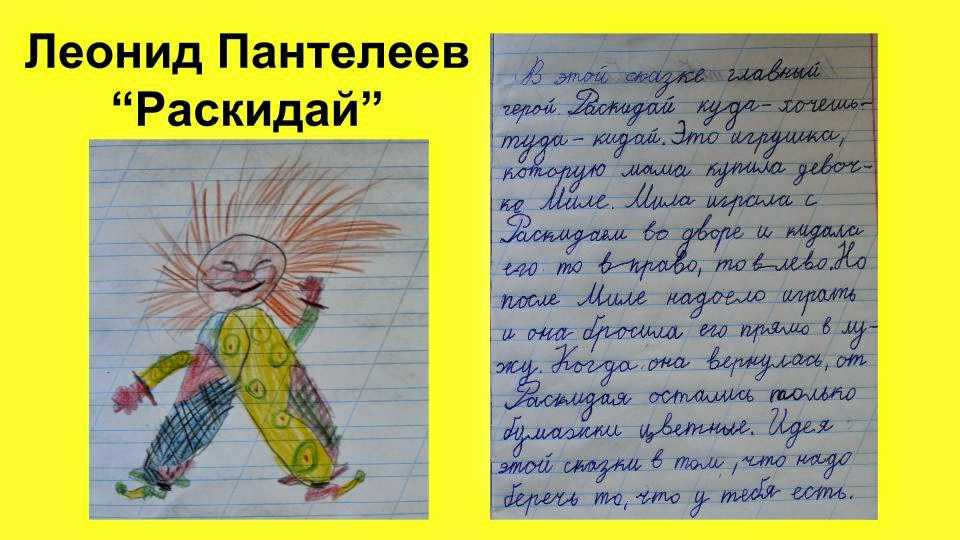 Леонид Пантелеев
“Раскидай”
В этой сказке главный
герой Раскидай куда-хочешь-
туда-кидай. Это игрушка,
которую мама купила девоч-
ке Миле. Мила играла с
Раскидаем во дворе и кидала
его то в право, то в лево. Но
после Миле надоело играть
и она бросила его прямо в лу-
жу. Когда она вернулась, от
Раскидая остались только
бумажки цветные. Идея
этой сказки в том, что надо
беречь то, что у тебя есть.